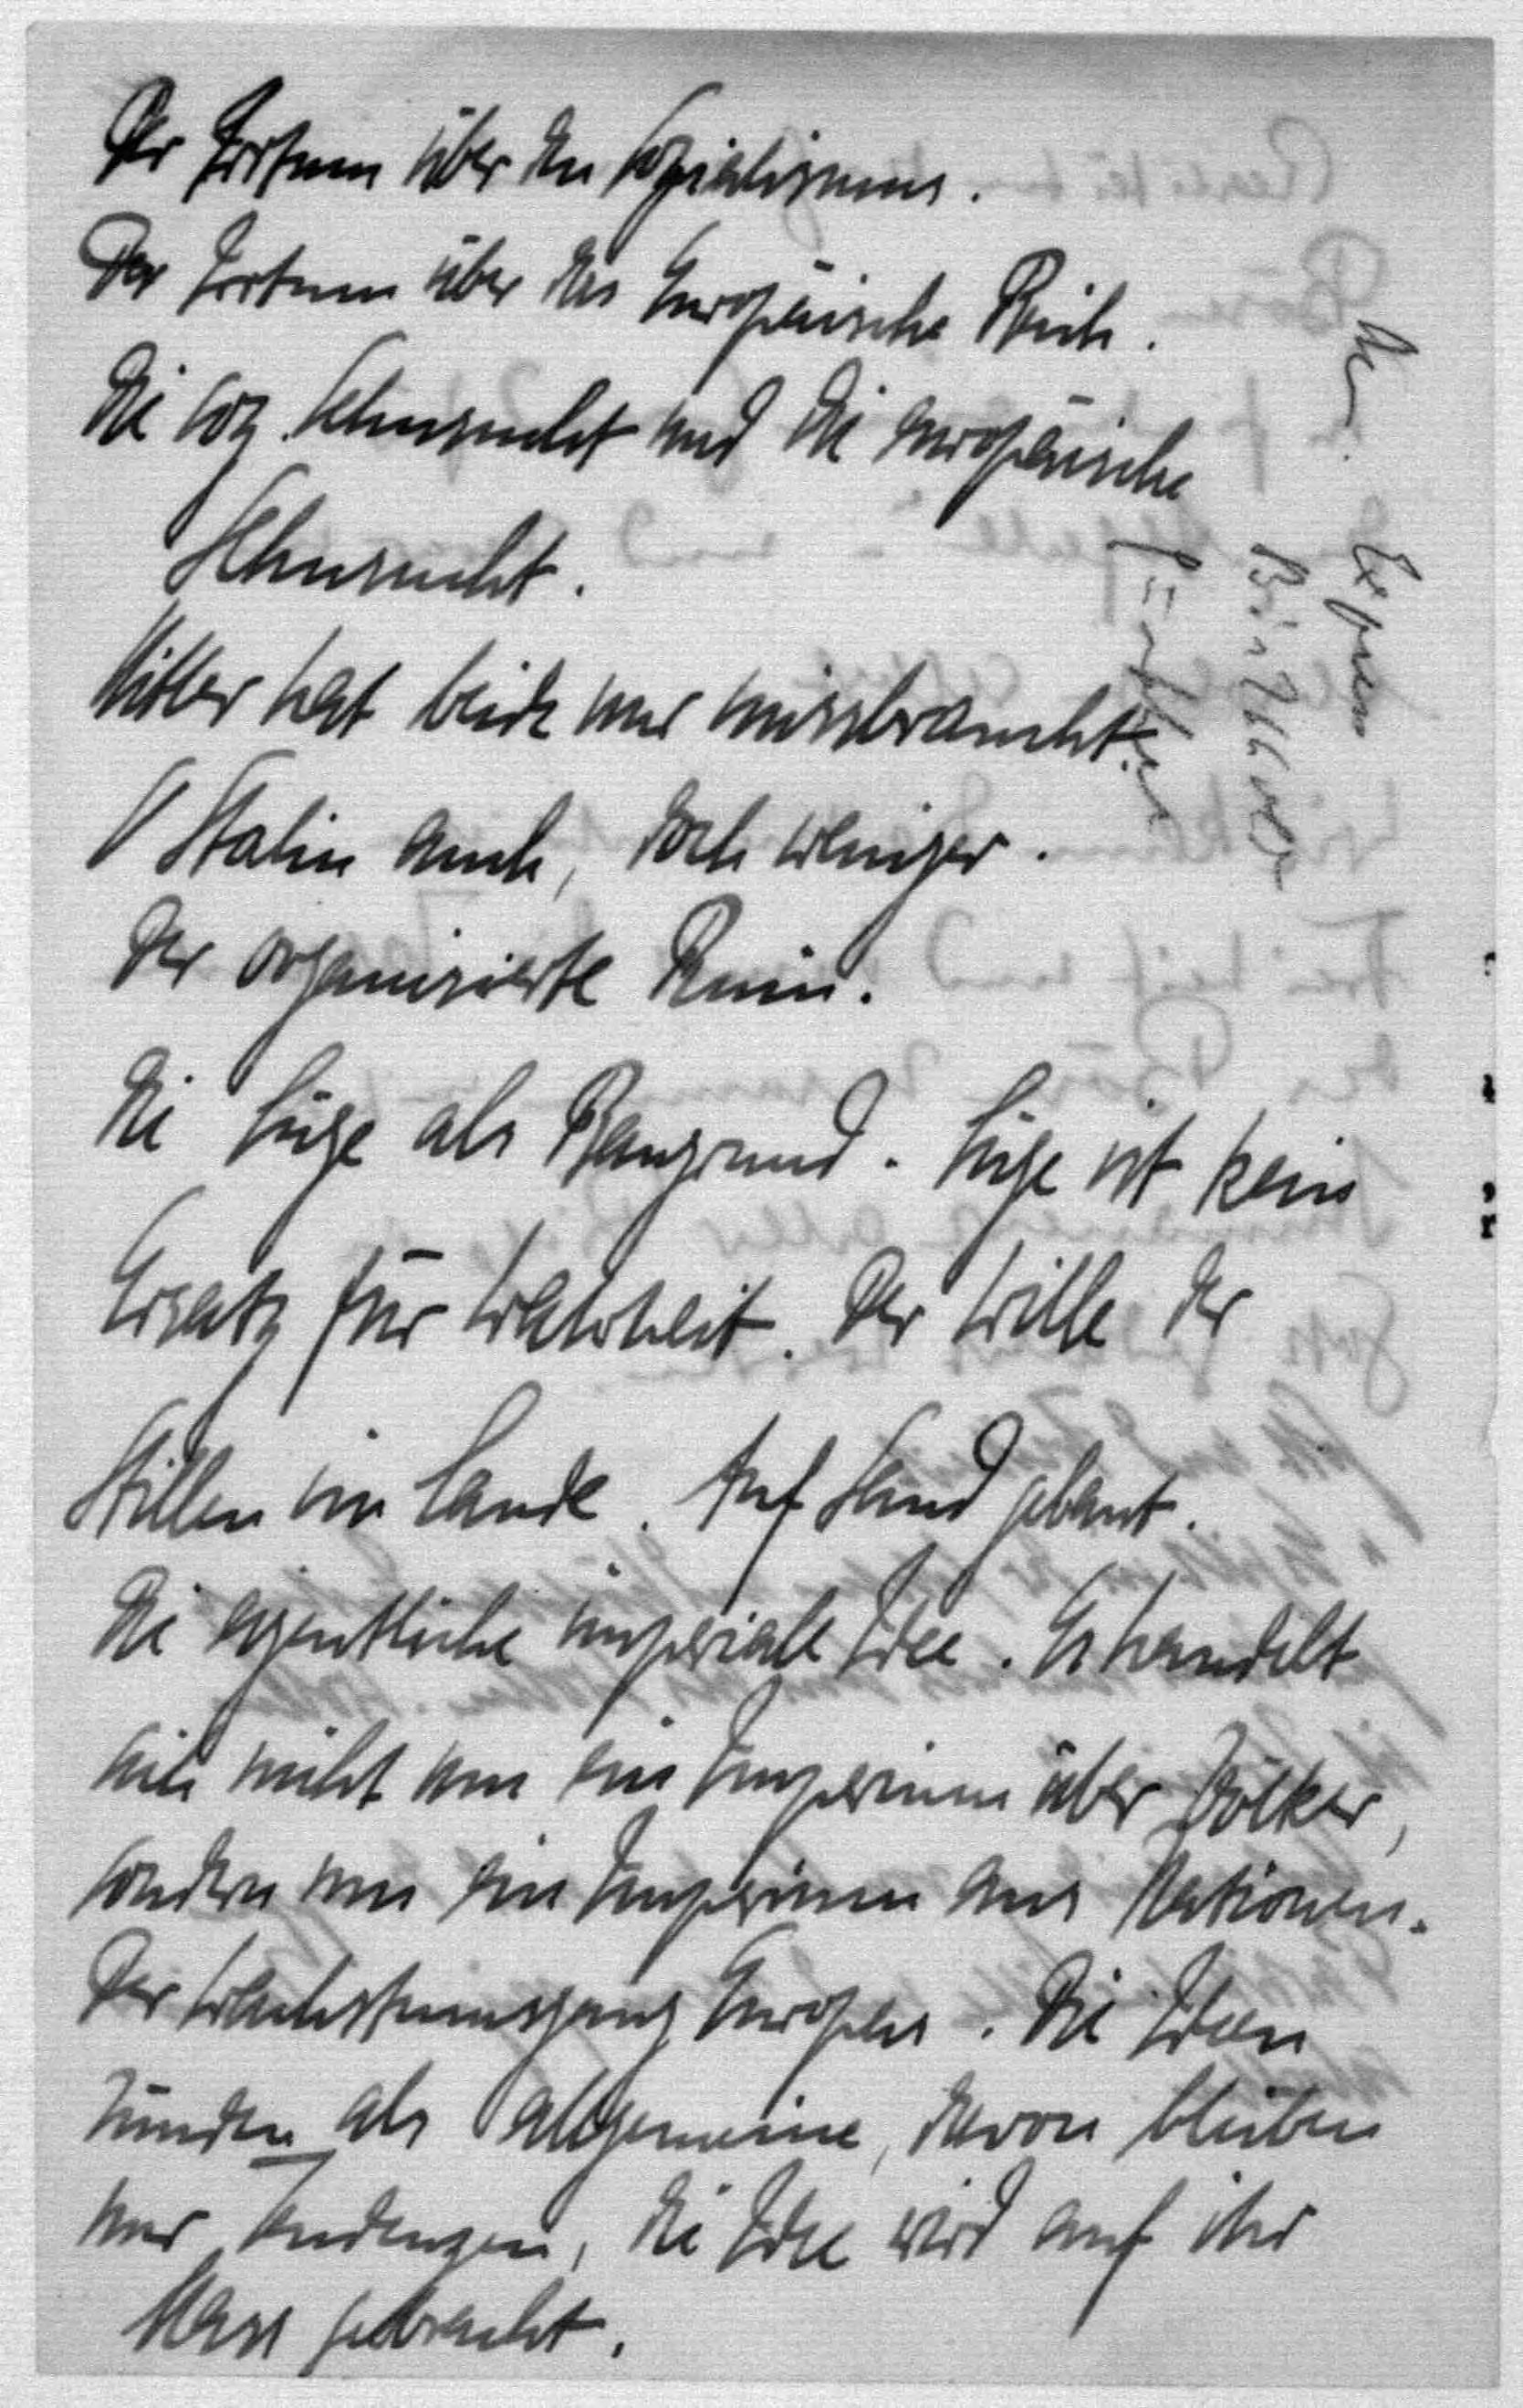 Der Irrtum über den Sozialismus.
Der Irrtum über das Europäische Reich.
Die soz. Sehnsucht und die europäische
Sehnsucht.
Hitler hat beide nur missbraucht.
Stalin auch, doch weniger.
Der organisierte Ruin.
Die Lüge als Baugrund. Lüge ist kein
Ersatz für Wahrheit. Der Wille der
Stillen im Lande. Auf Sand gebaut.
Die eigentliche imperiale Idee. Es handelt
sich nicht um ein Imperium über Völker,
sondern um ein Imperium aus Nationen.
Der Wachstumsgang Europas. Die Ideen
zünden als allgemeine, davon bleiben
nur Tendenzen, die Idee wird auf ihr
Mass gebracht.